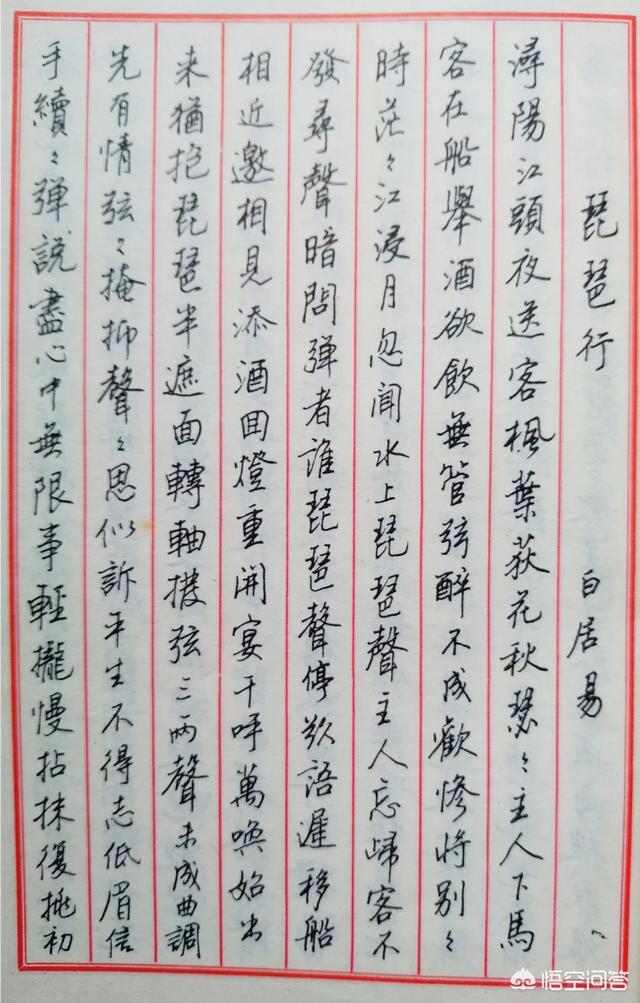 琵琶行 白居易
潯陽江頭夜送客楓葉荻花秋瑟〻主人下馬
客在船舉酒欲飲無管弦醉不成歡慘將別〻
時茫〻江浸月忽聞水上琵琶聲主人忘歸客不
發尋聲暗問彈者誰琵琶聲停欲語遲移船
相近邀相見添酒囬燈重開宴千呼萬喚始出
来猶抱琵琶半遮面轉軸撥弦三兩聲未成曲調
先有情弦〻掩抑聲〻思似訴平生不得志低眉信
手續〻彈說盡心中無限事輕攏慢拈抹復挑初
悟空问答